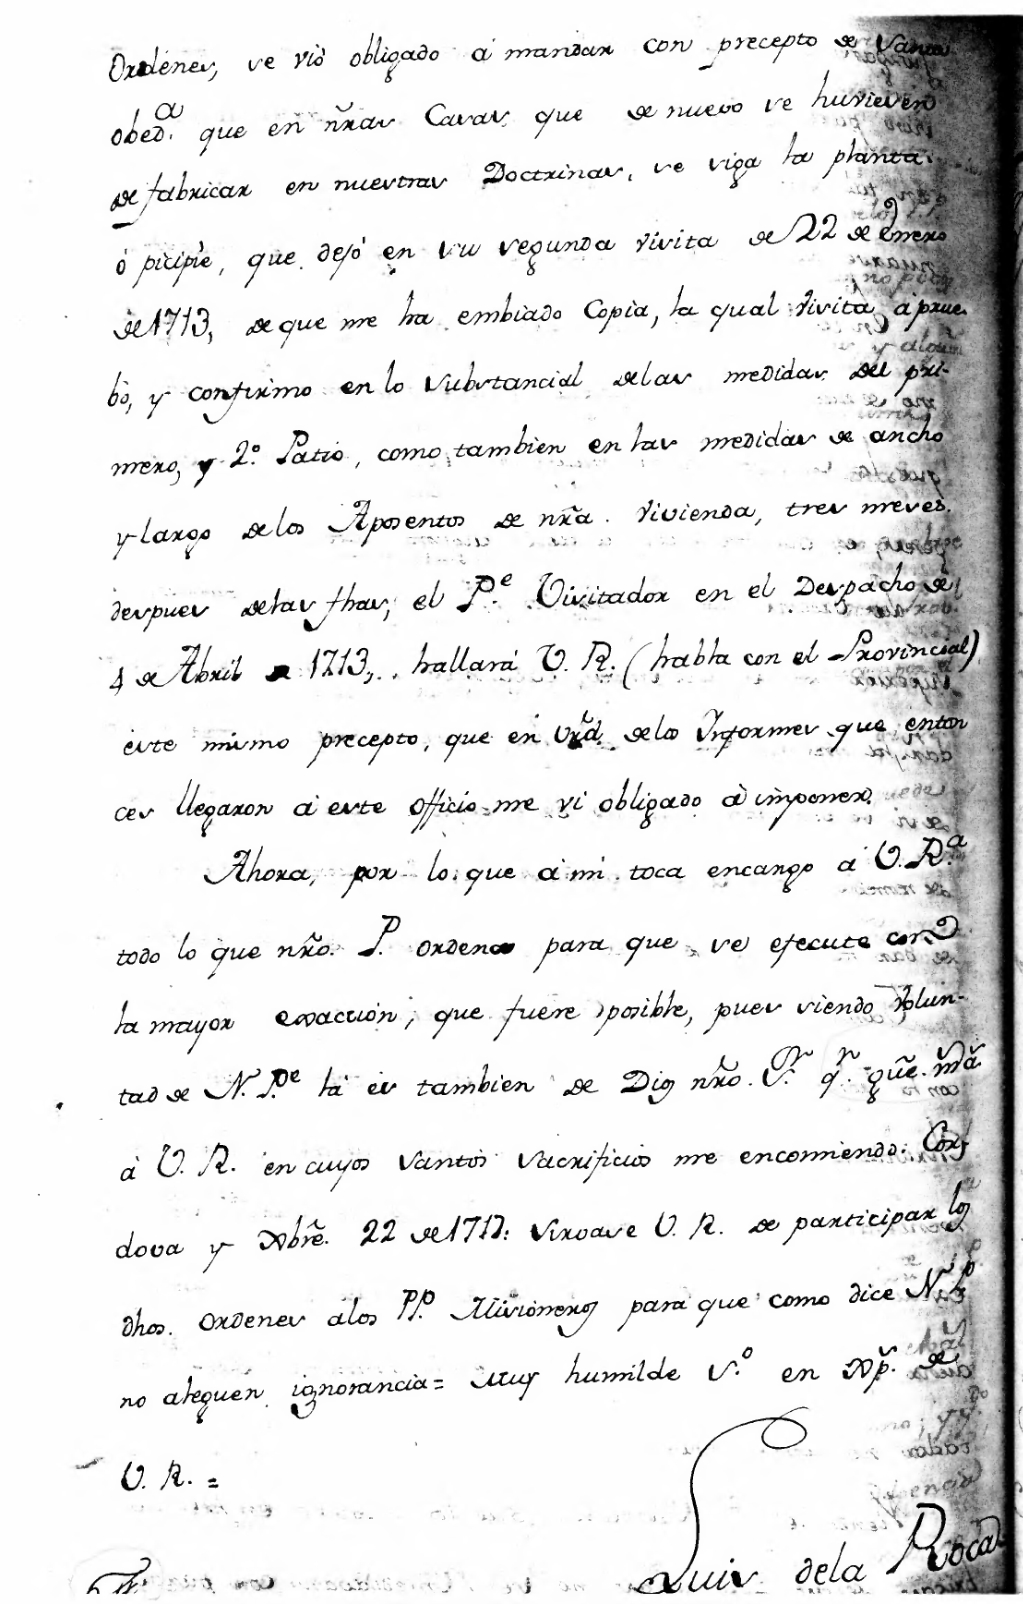 Ordenes, se viò obligado à mandar con precepto de Santa
obed.a que en ñras Casas, que de nuevo se huviesen
de fabricar en nuestras Doctrinas, se siga la planta
ó picipie, que dejó en su segunda visita de 22 de Enero
de 1713, de que me ha embiado Copia, la qual visita aprue-
bó, y confirmo en lo substancial de las medidas del pri-
mero, y 2.o Patio, como tambien en las medidas de ancho
y largo de los Aposentos de nra. vivienda, tres meses
despues de las fhas, el P.e Visitador en el Despacho de
4 de Abril de 1713, hallará V. R. (habla con el Provincial)
este mismo precepto, que en vrd. de los Informes que enton
ces llegaron à este Officio me vi obligado à imponer.
Ahora, por lo que à mi toca encargo à V. R.a
todo lo que nro. P. ordena para que se ejecute con
la mayor exaccion, que fuere posible, pues siendo volun-
tad de N. P.e la es tambien de Dios nro. S.r q.n gue. ms. a.
à V. R. en cuyos Santos Sacrificios me encomiendo. Cor-
dova y Xbre. 22 de 1717: Sirvase V. R. de participar los
dhos. ordenes a los PP. Missioneros para que como dice N. P.
no aleguen ignorancia = Muy humilde S.o en Xp. de
V. R. =
Luis de la Roca